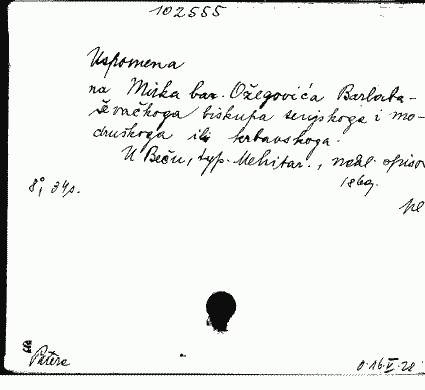 102555
Uspomena
na Mirka bar. Ožegovića Barlaba-
ševačkoga biskupa senjskoga i mo-
druškoga ili krbavskoga.
U Beču, typ. Mehitar., nakl. opisov
1869.
8°, 34 s.